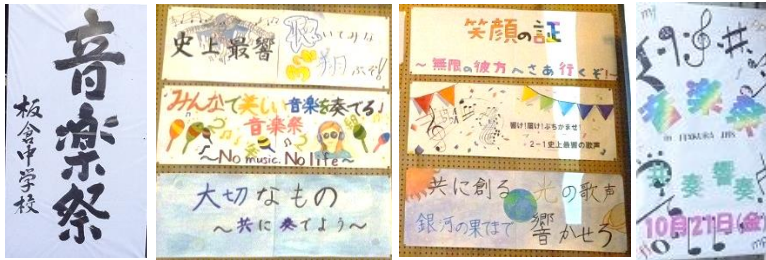 音楽祭
板倉中学校
史上最響
聴いてみな
翔ぶぞ!!
みんなで美しい音楽を奏でる♪
音楽祭
~No music. No life~
大切なもの
~共に奏でよう~
笑顔の証
~無限の彼方へさあ行くぞ!~
響け!届け!ぶちかませ!
2-1史上最響の歌声
共に創る 光の歌声
銀河の果てまで 響かせろ
音楽祭
in ITAKURA JHS
共奏響奏
10月21日(金)